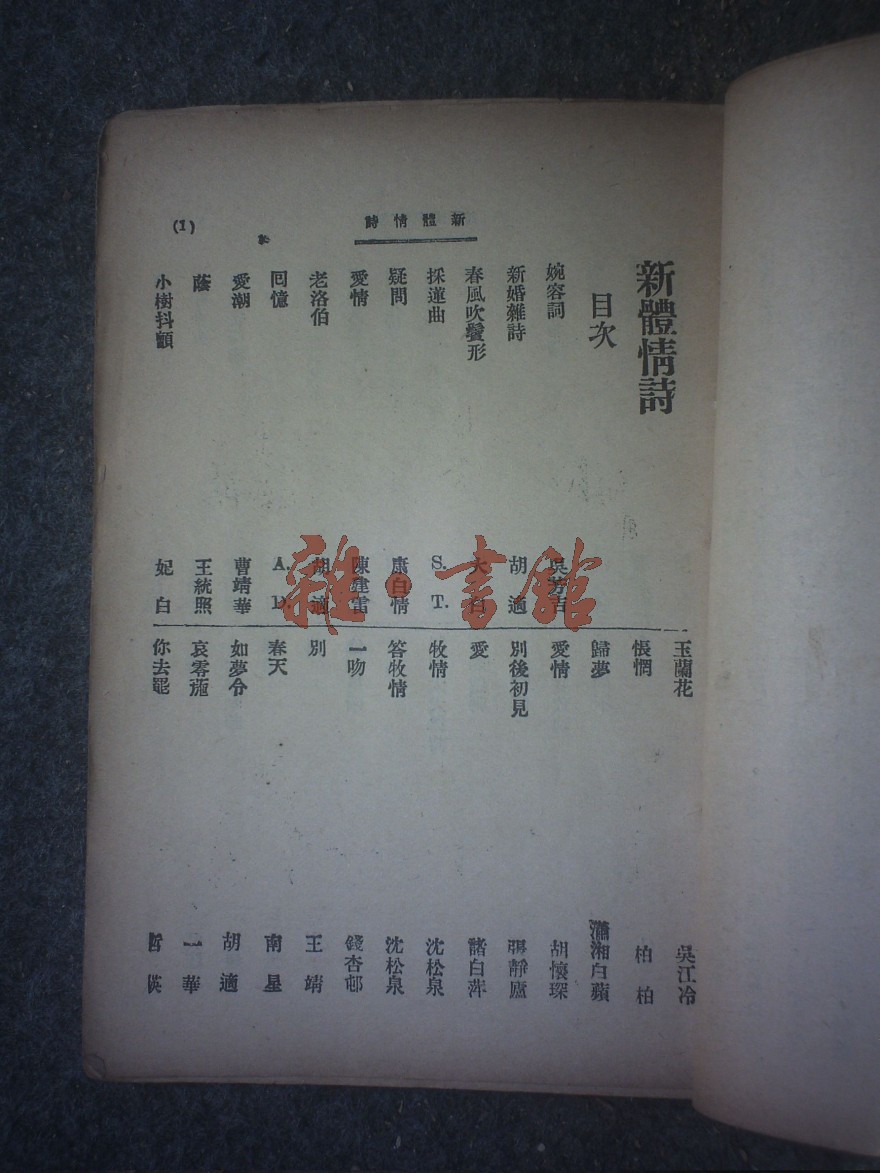 新體情詩
(1)
新體情詩
目次
婉容詞 吳芳吉
新婚雜詩 胡適
春風吹鬢形 大白
採蓮曲 S. T.
疑問 康白情
愛情 陳建雷
老洛伯 胡適
回憶 A.
愛潮 曹靖華
蔭 王統照
小樹抖顫 妃白
玉蘭花 吳江冷
悵惘 柏柏
歸夢 瀟湘白蘋
愛情 胡懷琛
別後初見 張靜廬
愛 諸白萍
牧情 沈松泉
答牧情 沈松泉
一吻 錢杏邨
別 王靖
春天 南星
如夢令 胡適
哀零 一華
你去罷 哲
雜·書館